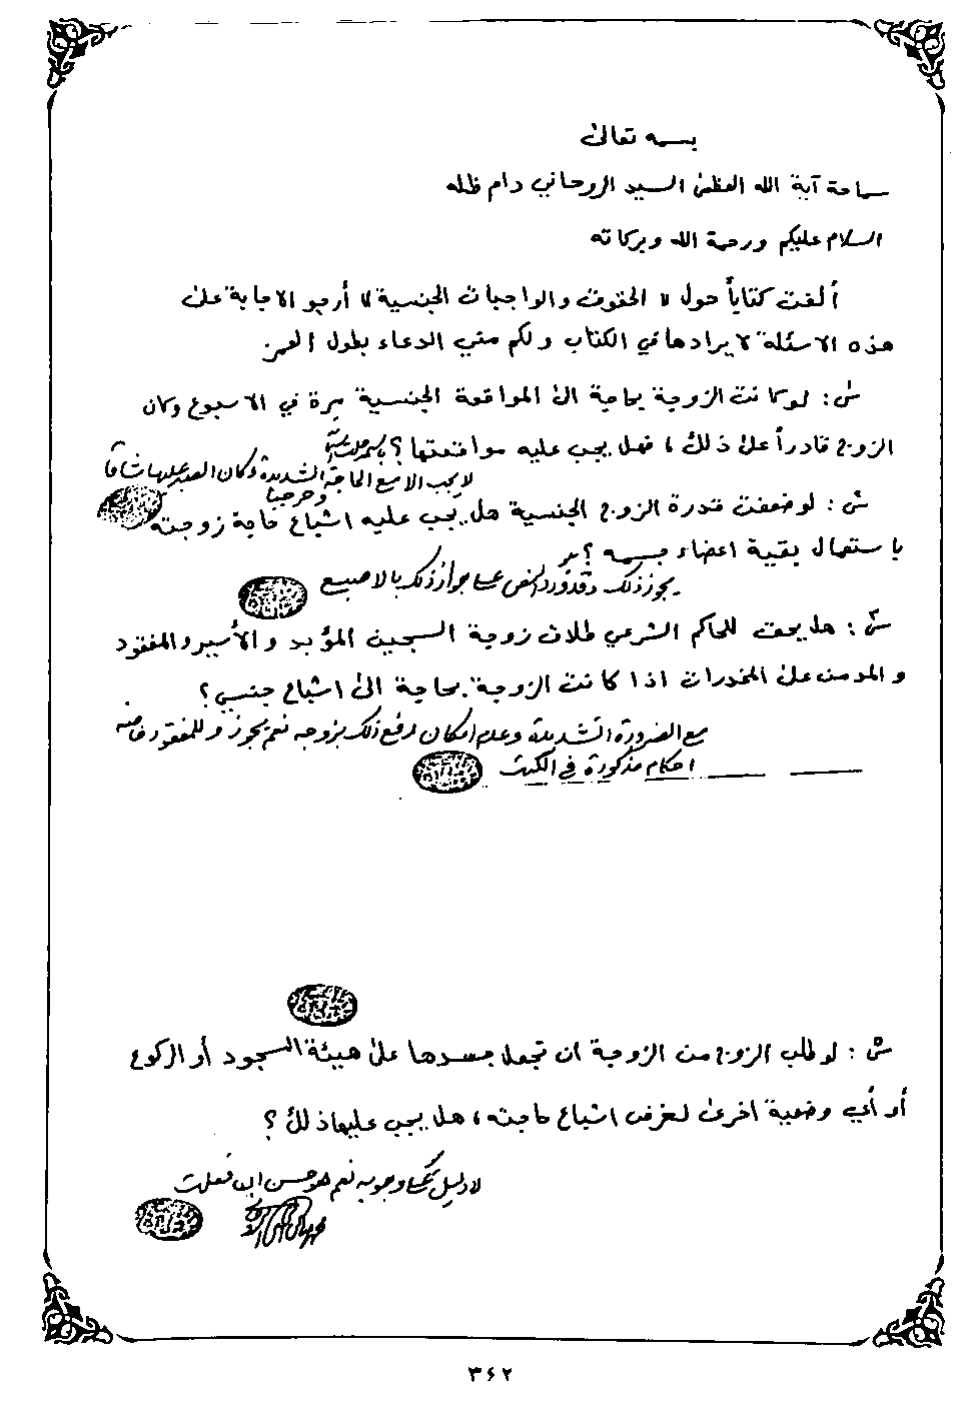 بسمه تعالى
سماحة آية الله العظمى السيد الروحاني دام ظله
السلام عليكم ورحمة الله وبركاته
ألفت كتاباً حول « الحقوق والواجبات الجنسية » أرجو الاجابة على
هذه الاسئلة لايرادها في الكتاب ولكم مني الدعاء بطول العمر
س١: لو كانت الزوجة بحاجة الى المواقعة الجنسية مرة في الاسبوع وكان
الزوج قادراً على ذلك ، فهل يجب عليه مواقعتها ؟ باسمه جلت أسمائه
لا يجب الا مع الحاجة الشديدة وكان الصبر عليها شاقا
وحرجيا
س٢: لو ضعفت قدرة الزوج الجنسية هل يجب عليه اشباع حاجة زوجته
باستعمال بقية اعضاء جسمه ؟
يجوز ذلك وقد ورد النص على جواز ذلك بالاصبع
س٣: هل يحق للحاكم الشرعي طلاق زوجة السجين المؤبد والأسير والمفقود
والمدمن على المخدرات اذا كانت الزوجة بحاجة الى اشباع جنسي ؟
مع الضرورة الشديدة وعدم امكان رفع ذلك بزوجه نعم يجوز وللمفقود خاصه
احكام مذكورة في الكتب
س٤: لو طلب الزوج من الزوجة ان تجعل جسدها على هيئة السجود أو الركوع
أو أي وضعية اخرى لغرض اشباع حاجته ، هل يجب عليها ذلك ؟
لا دليل على وجوبه نعم هو حسن ان فعلت
٣٤٢